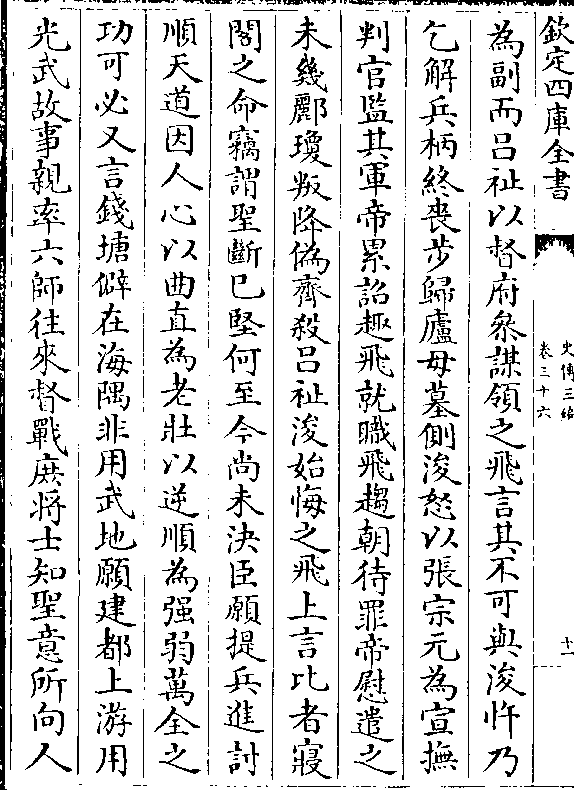 欽定四庫全書
史傳三編
卷三十六
十一
為副而呂祉以督府叅謀領之飛言其不可與浚忤乃
乞解兵柄終喪步歸廬母墓側浚怒以張宗元為宣撫
判官監其軍帝累詔趣飛就職飛趨朝待罪帝慰遣之
未幾酈瓊叛降偽齊殺呂祉浚始悔之飛上言比者寢
閤之命竊謂聖斷已堅何至今尚未決臣願提兵進討
順天道因人心以曲直為老壯以逆順為强弱萬全之
功可必又言錢塘僻在海隅非用武地願建都上游用
光武故事親率六師往來督戰庶將士知聖意所向人